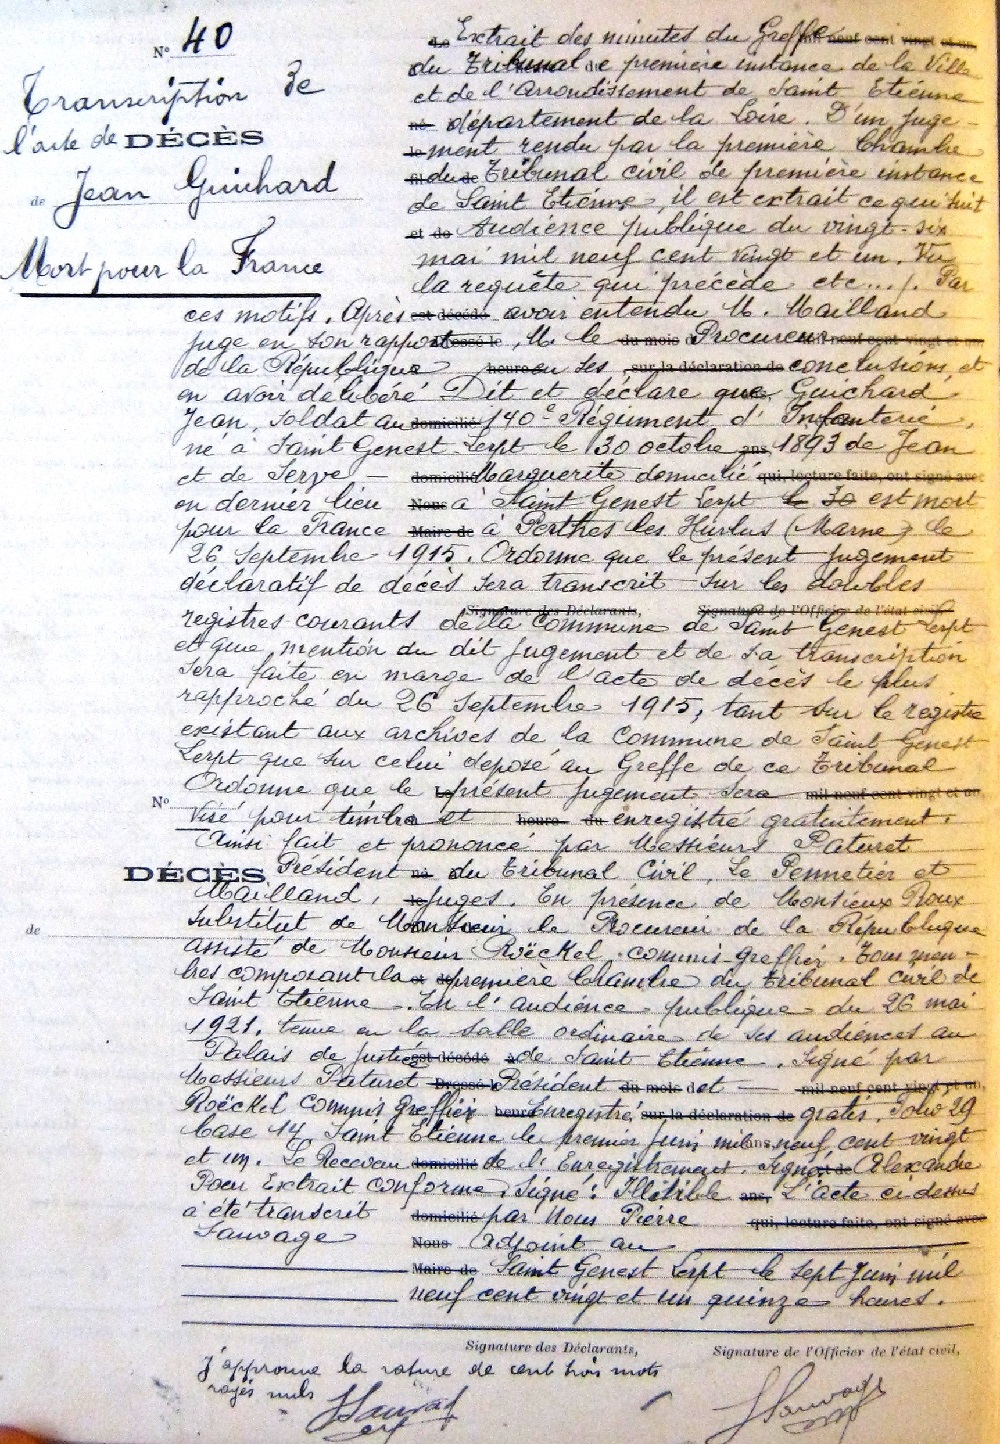 N° 40
Transcription de
l'acte de DÉCÈS
de Jean Guichard
Mort pour la France
Extrait des minutes du Greffe mil neuf cent vingt et un
du Tribunal de première instance de la Ville
et de l'Arrondissement de Saint Etienne
né département de la Loire. D'un juge-
le ment rendu par la première Chambre
fil du de Tribunal civil de première instance
de Saint Etienne, il est extrait ce qui suit
et de Audience publique du vingt-six
mai mil neuf cent vingt et un. Vu
la requête qui précède etc.../. Par
ces motifs. Après est décédé avoir entendu M. Mailland
juge en son rapport, M. le du mois Procureur mil neuf cent vingt et un
de la République heure en ses sur la déclaration de conclusions, et
en avoir délibéré Dit et déclare que Guichard
Jean, soldat au domicilié 140e Régiment d'Infanterie,
né à Saint Genest Lerpt le 30 octobre ans, 1893 de Jean
et de Serve — domicilié Marguerite domicilié qui, lecture faite, ont signé avec
en dernier lieu Nous à Saint Genest Lerpt le 30 est mort
pour la France Maire de à Perthes les Hurlus (Marne) le
26 Septembre 1915. Ordonne que le présent jugement
déclaratif de décès sera transcrit sur les doubles
Signature des Déclarants, Signature de l'Officier de l'état civil
registres courants de la Commune de Saint Genest Lerpt
et que mention du dit jugement et de sa transcription
sera faite en marge de l'acte de décès le plus
rapproché du 26 Septembre 1915, tant sur le registre
existant aux archives de la Commune de Saint Genest
Lerpt que sur celui déposé au Greffe de ce Tribunal
Ordonne que le présent jugement sera mil neuf cent vingt et un,
N°
Visé pour timbre et heure du enregistré gratuitement.
Ainsi fait et prononcé par Messieurs Paturet
DÉCÈS
Président né du Tribunal Civil, Le Pennetier et
Mailland, le juges. En présence de Monsieur Roux
de
Substitut de Monsieur le Procureur de la République
assisté de Monsieur Roëckel commis-greffier. Tous mem-
bres composant la et de première Chambre du Tribunal civil de
Saint Etienne. En l'audience publique du 26 mai
1921, tenue en la salle ordinaire de ses audiences au
Palais de Justice est décédé à de Saint Etienne. Signé par
Messieurs Paturet Dressé le Président du mois d et — mil neuf cent vingt et un,
Roëckel Commis Greffier heure Enregistré, sur la déclaration de gratis. Folio 29
Case 14 Saint Etienne le premier Juin mil ans, neuf cent vingt
et un. Le Receveur domicilié de l'Enregistrement. Signé et de Alexandre
Pour Extrait conforme. Signé: Illisible ans, L'acte ci dessus
a été transcrit domicilié par Nous Pierre qui, lecture faite, ont signé avec
Sauvage Nous adjoint au
Maire de Saint Genest Lerpt le sept Juin mil
neuf cent vingt et un quinze heures.
Signature des Déclarants, Signature de l'Officier de l'état civil,
J'approuve la rature de cent trois mots
rayés nuls
Sauvage
Sauvage